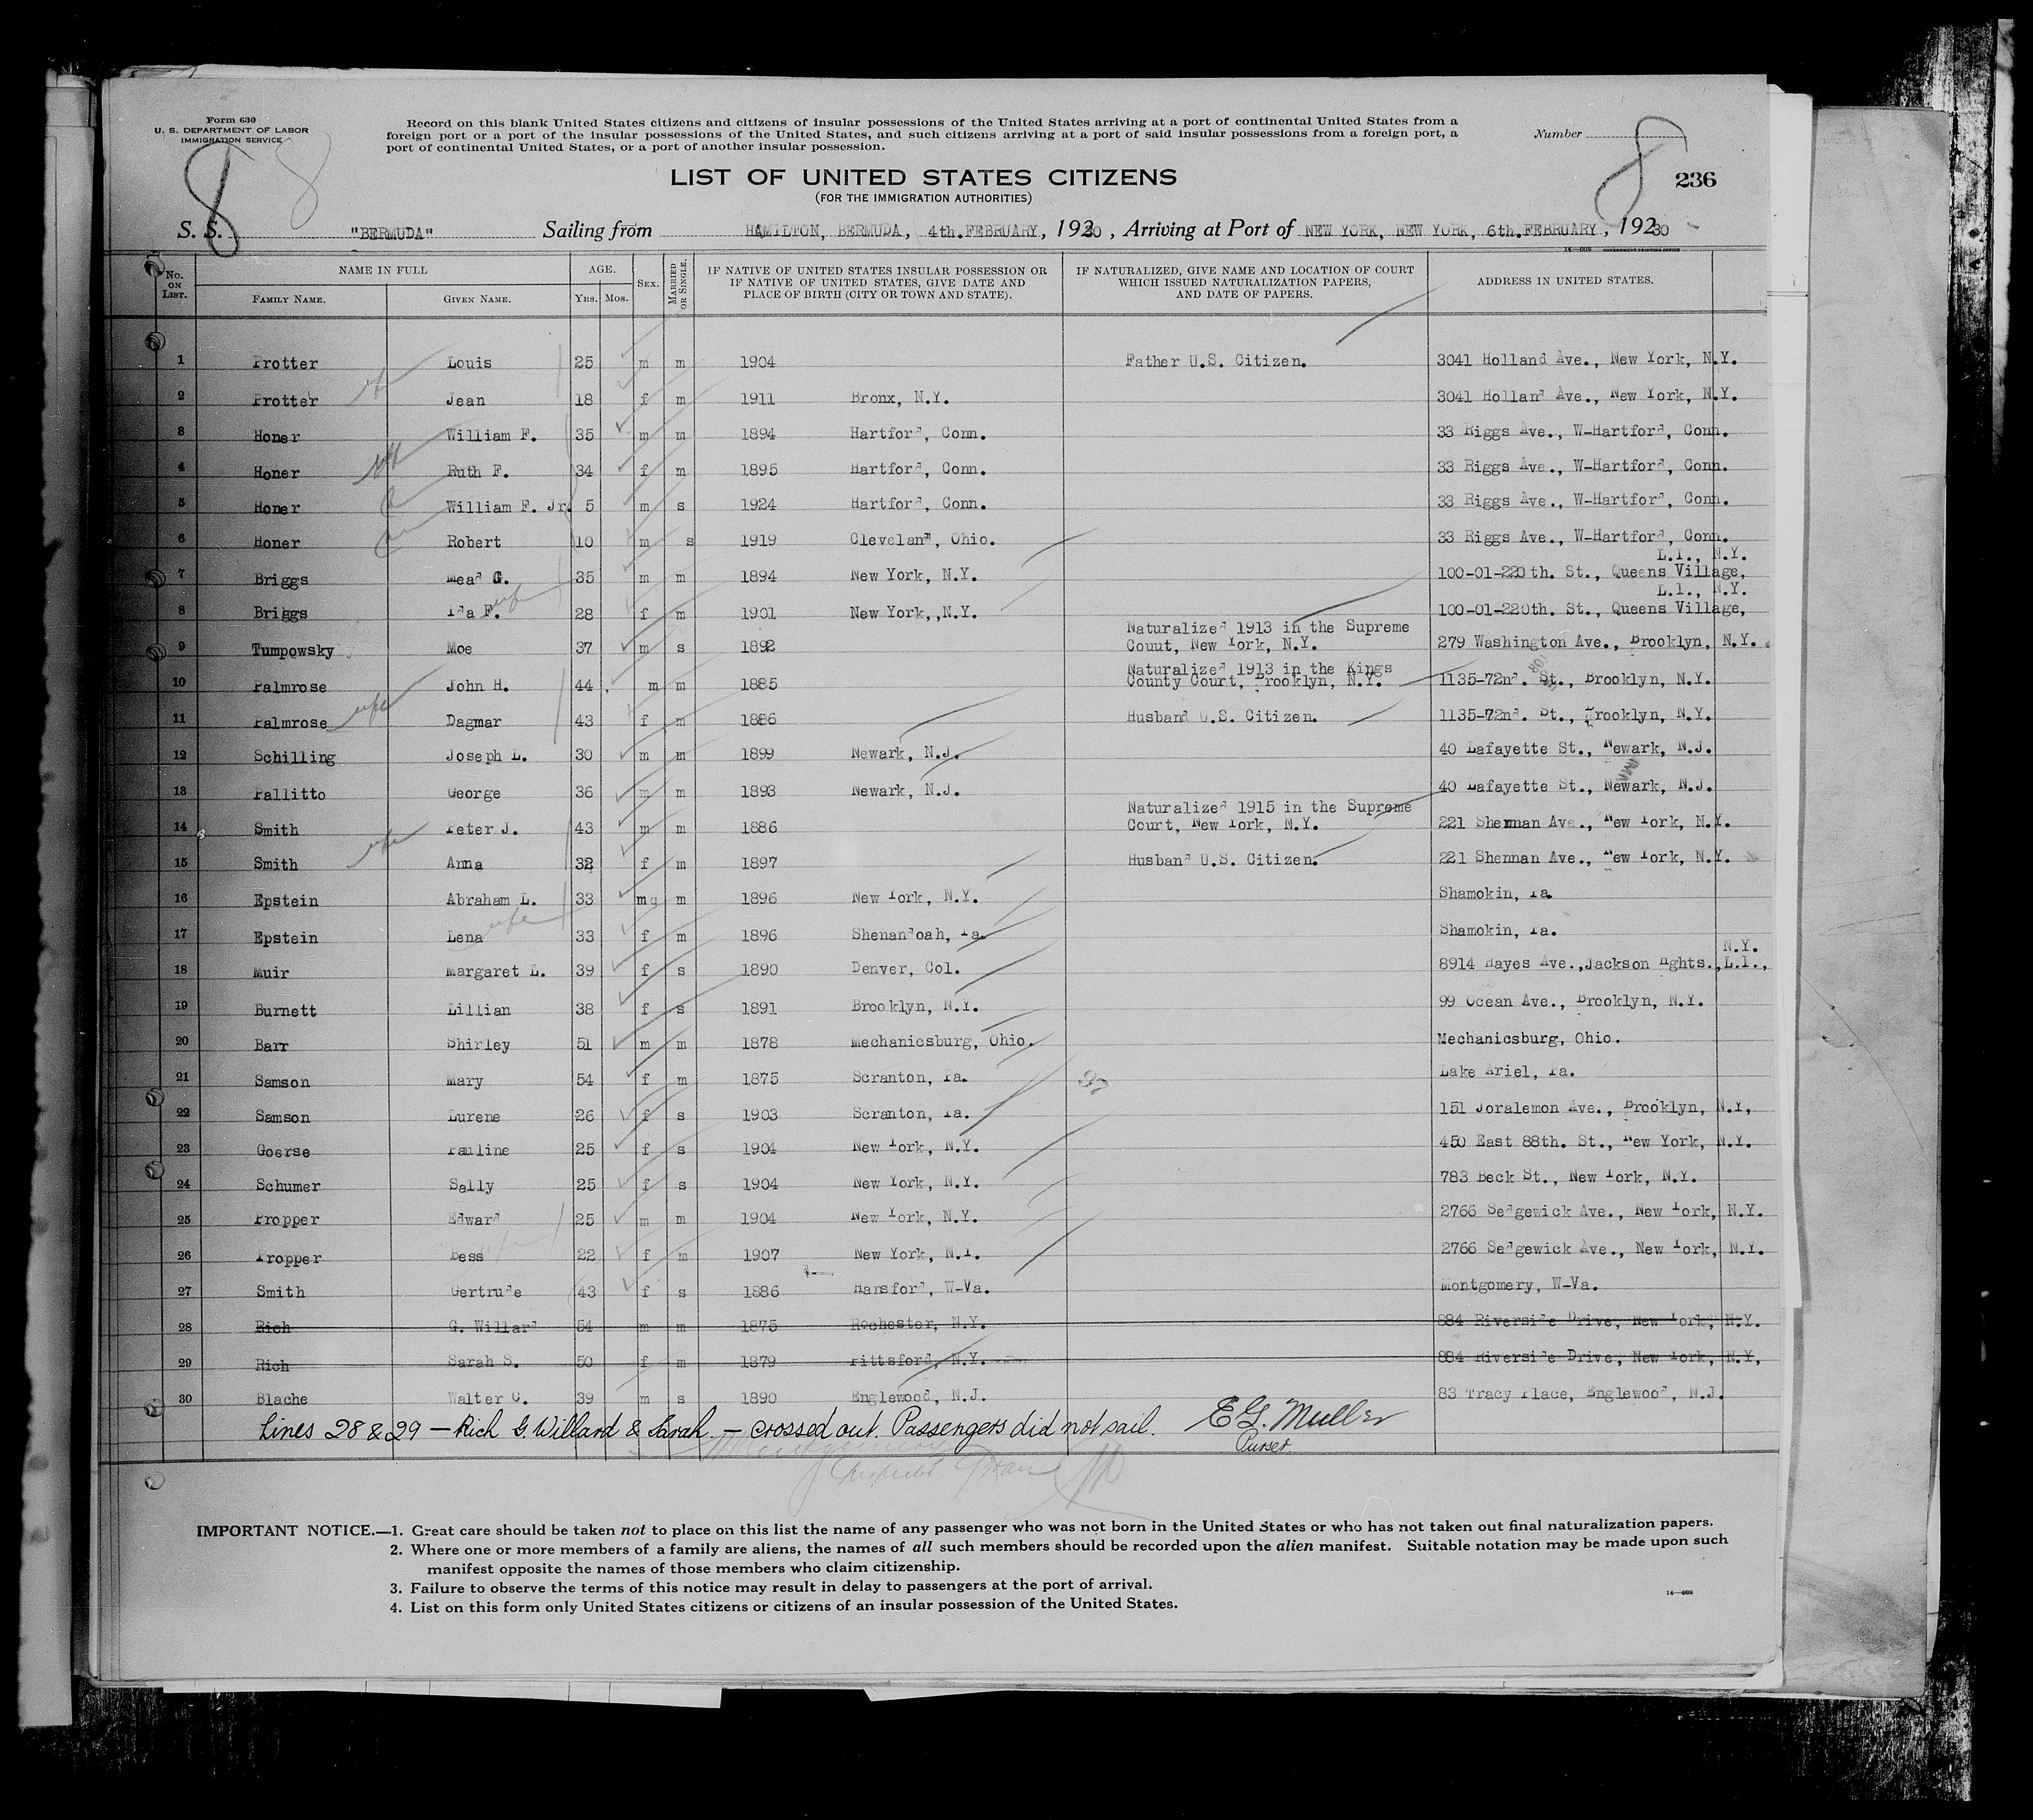 Form 630
U. S. DEPARTMENT OF LABOR
IMMIGRATION SERVICE
Record on this blank United States citizens and citizens of insular possessions of the United States arriving at a port of continental United States from a
foreign port or a port of the insular possessions of the United States, and such citizens arriving at a port of said insular possessions from a foreign port, a
port of continental United States, or a port of another insular possession.
Number
8 8 8
236
LIST OF UNITED STATES CITIZENS
(FOR THE IMMIGRATION AUTHORITIES)
S. S. "BERMUDA" Sailing from HAMILTON, BERMUDA, 4th.FEBRUARY, 1930, Arriving at Port of NEW YORK, NEW YORK, 6th.FEBRUARY, 1930
14—608 GOVERNMENT PRINTING OFFICE
No. ON LIST. NAME IN FULL FAMILY NAME. GIVEN NAME. AGE. YRS. MOS. SEX. MARRIED OR SINGLE. IF NATIVE OF UNITED STATES INSULAR POSSESSION OR IF NATIVE OF UNITED STATES, GIVE DATE AND PLACE OF BIRTH (CITY OR TOWN AND STATE). IF NATURALIZED, GIVE NAME AND LOCATION OF COURT WHICH ISSUED NATURALIZATION PAPERS, AND DATE OF PAPERS. ADDRESS IN UNITED STATES.
1 Protter Louis 25 m m 1904 Father U.S. Citizen. 3041 Holland Ave., New York, N.Y.
2 Protter wf Jean 18 f m 1911 Bronx, N.Y. 3041 Holland Ave., New York, N.Y.
3 Honer William F. 35 m m 1894 Hartford, Conn. 33 Riggs Ave., W-Hartford, Conn.
4 Honer wf Ruth F. 34 f m 1895 Hartford, Conn. 33 Riggs Ave., W-Hartford, Conn.
5 Honer William F. Jr. 5 m s 1924 Hartford, Conn. 33 Riggs Ave., W-Hartford, Conn.
6 Honer Robert 10 m s 1919 Cleveland, Ohio. 33 Riggs Ave., W-Hartford, Conn.
7 Briggs Mead G. 35 m m 1894 New York, N.Y. 100-01-220th. St., Queens Village, L.I., N.Y.
8 Briggs Ida F. wife 28 f m 1901 New York,,N.Y. 100-01-220th. St., Queens Village, L.I., N.Y.
9 Tumpowsky Moe 37 m s 1892 Naturalized 1913 in the Supreme Couut, New York, N.Y. 279 Washington Ave., Brooklyn, N.Y.
10 Palmrose John H. 44 m m 1885 Naturalized 1913 in the Kings County Court, Brooklyn, N.Y. 1135-72nd. St., Brooklyn, N.Y.
11 Palmrose wife Dagmar 43 f m 1886 Husband U.S. Citizen. 1135-72nd. St., Brooklyn, N.Y.
12 Schilling Joseph L. 30 m m 1899 Newark, N.J. 40 Lafayette St., Newark, N.J.
13 Pallitto George 36 m m 1893 Newark, N.J. 40 Lafayette St., Newark, N.J.
14 Smith Peter J. 43 m m 1886 Naturalized 1915 in the Supreme Court, New York, N.Y. 221 Sherman Ave., New York, N.Y.
15 Smith wife Anna 32 f m 1897 Husband U.S. Citizen. 221 Shennan Ave., New York, N.Y.
16 Epstein Abraham L. 33 m m 1896 New York, N.Y. Shamokin, Pa.
17 Epstein Lena wife 33 f m 1896 Shenandoah, Pa. Shamokin, Pa.
18 Muir Margaret L. 39 f s 1890 Denver, Col. 8914 Hayes Ave.,Jackson Hghts.,L.I., N.Y.
19 Burnett Lillian 38 f s 1891 Brooklyn, N.Y. 99 Ocean Ave., Brooklyn, N.Y.
20 Barr Shirley 51 m m 1878 Mechanicsburg, Ohio. Mechanicsburg, Ohio.
21 Samson Mary 54 f m 1875 Scranton, Pa. Lake Ariel, Pa.
22 Samson Lurene 26 f s 1903 Scranton, Pa. 151 Joralemon Ave., Brooklyn, N.Y,
23 Goerse Pauline 25 f s 1904 New York, N.Y. 450 East 88th. St., New York, N.Y.
24 Schumer Sally 25 f s 1904 New York, N.Y. 783 Beck St., New York, N.Y.
25 Propper Edward 25 m m 1904 New York, N.Y. 2766 Sedgewick Ave., New York, N.Y.
26 Propper Bess 22 f m 1907 New York, N.Y. 2766 Sedgewick Ave., New York, N.Y.
27 Smith Gertrude 43 f s 1886 Hansford, W-Va. Montgomery, W-Va.
28 Rich G. Willard 54 m m 1875 Rochester, N.Y. 884 Riverside Drive, New York, N.Y.
29 Rich Sarah S. 50 f m 1879 Pittsford, N.Y. 884 Riverside Drive, New York, N.Y,
30 Blache Walter C. 39 m s 1890 Englewood, N.J. 83 Tracy Place, Englewood, N.J.
Lines 28 & 29 — Rich G. Willard & Sarah. — crossed out. Passengers did not sail. E G. Muller
Purser.
IMPORTANT NOTICE.—1. Great care should be taken not to place on this list the name of any passenger who was not born in the United States or who has not taken out final naturalization papers.
2. Where one or more members of a family are aliens, the names of all such members should be recorded upon the alien manifest. Suitable notation may be made upon such
manifest opposite the names of those members who claim citizenship.
3. Failure to observe the terms of this notice may result in delay to passengers at the port of arrival.
4. List on this form only United States citizens or citizens of an insular possession of the United States.
14—608